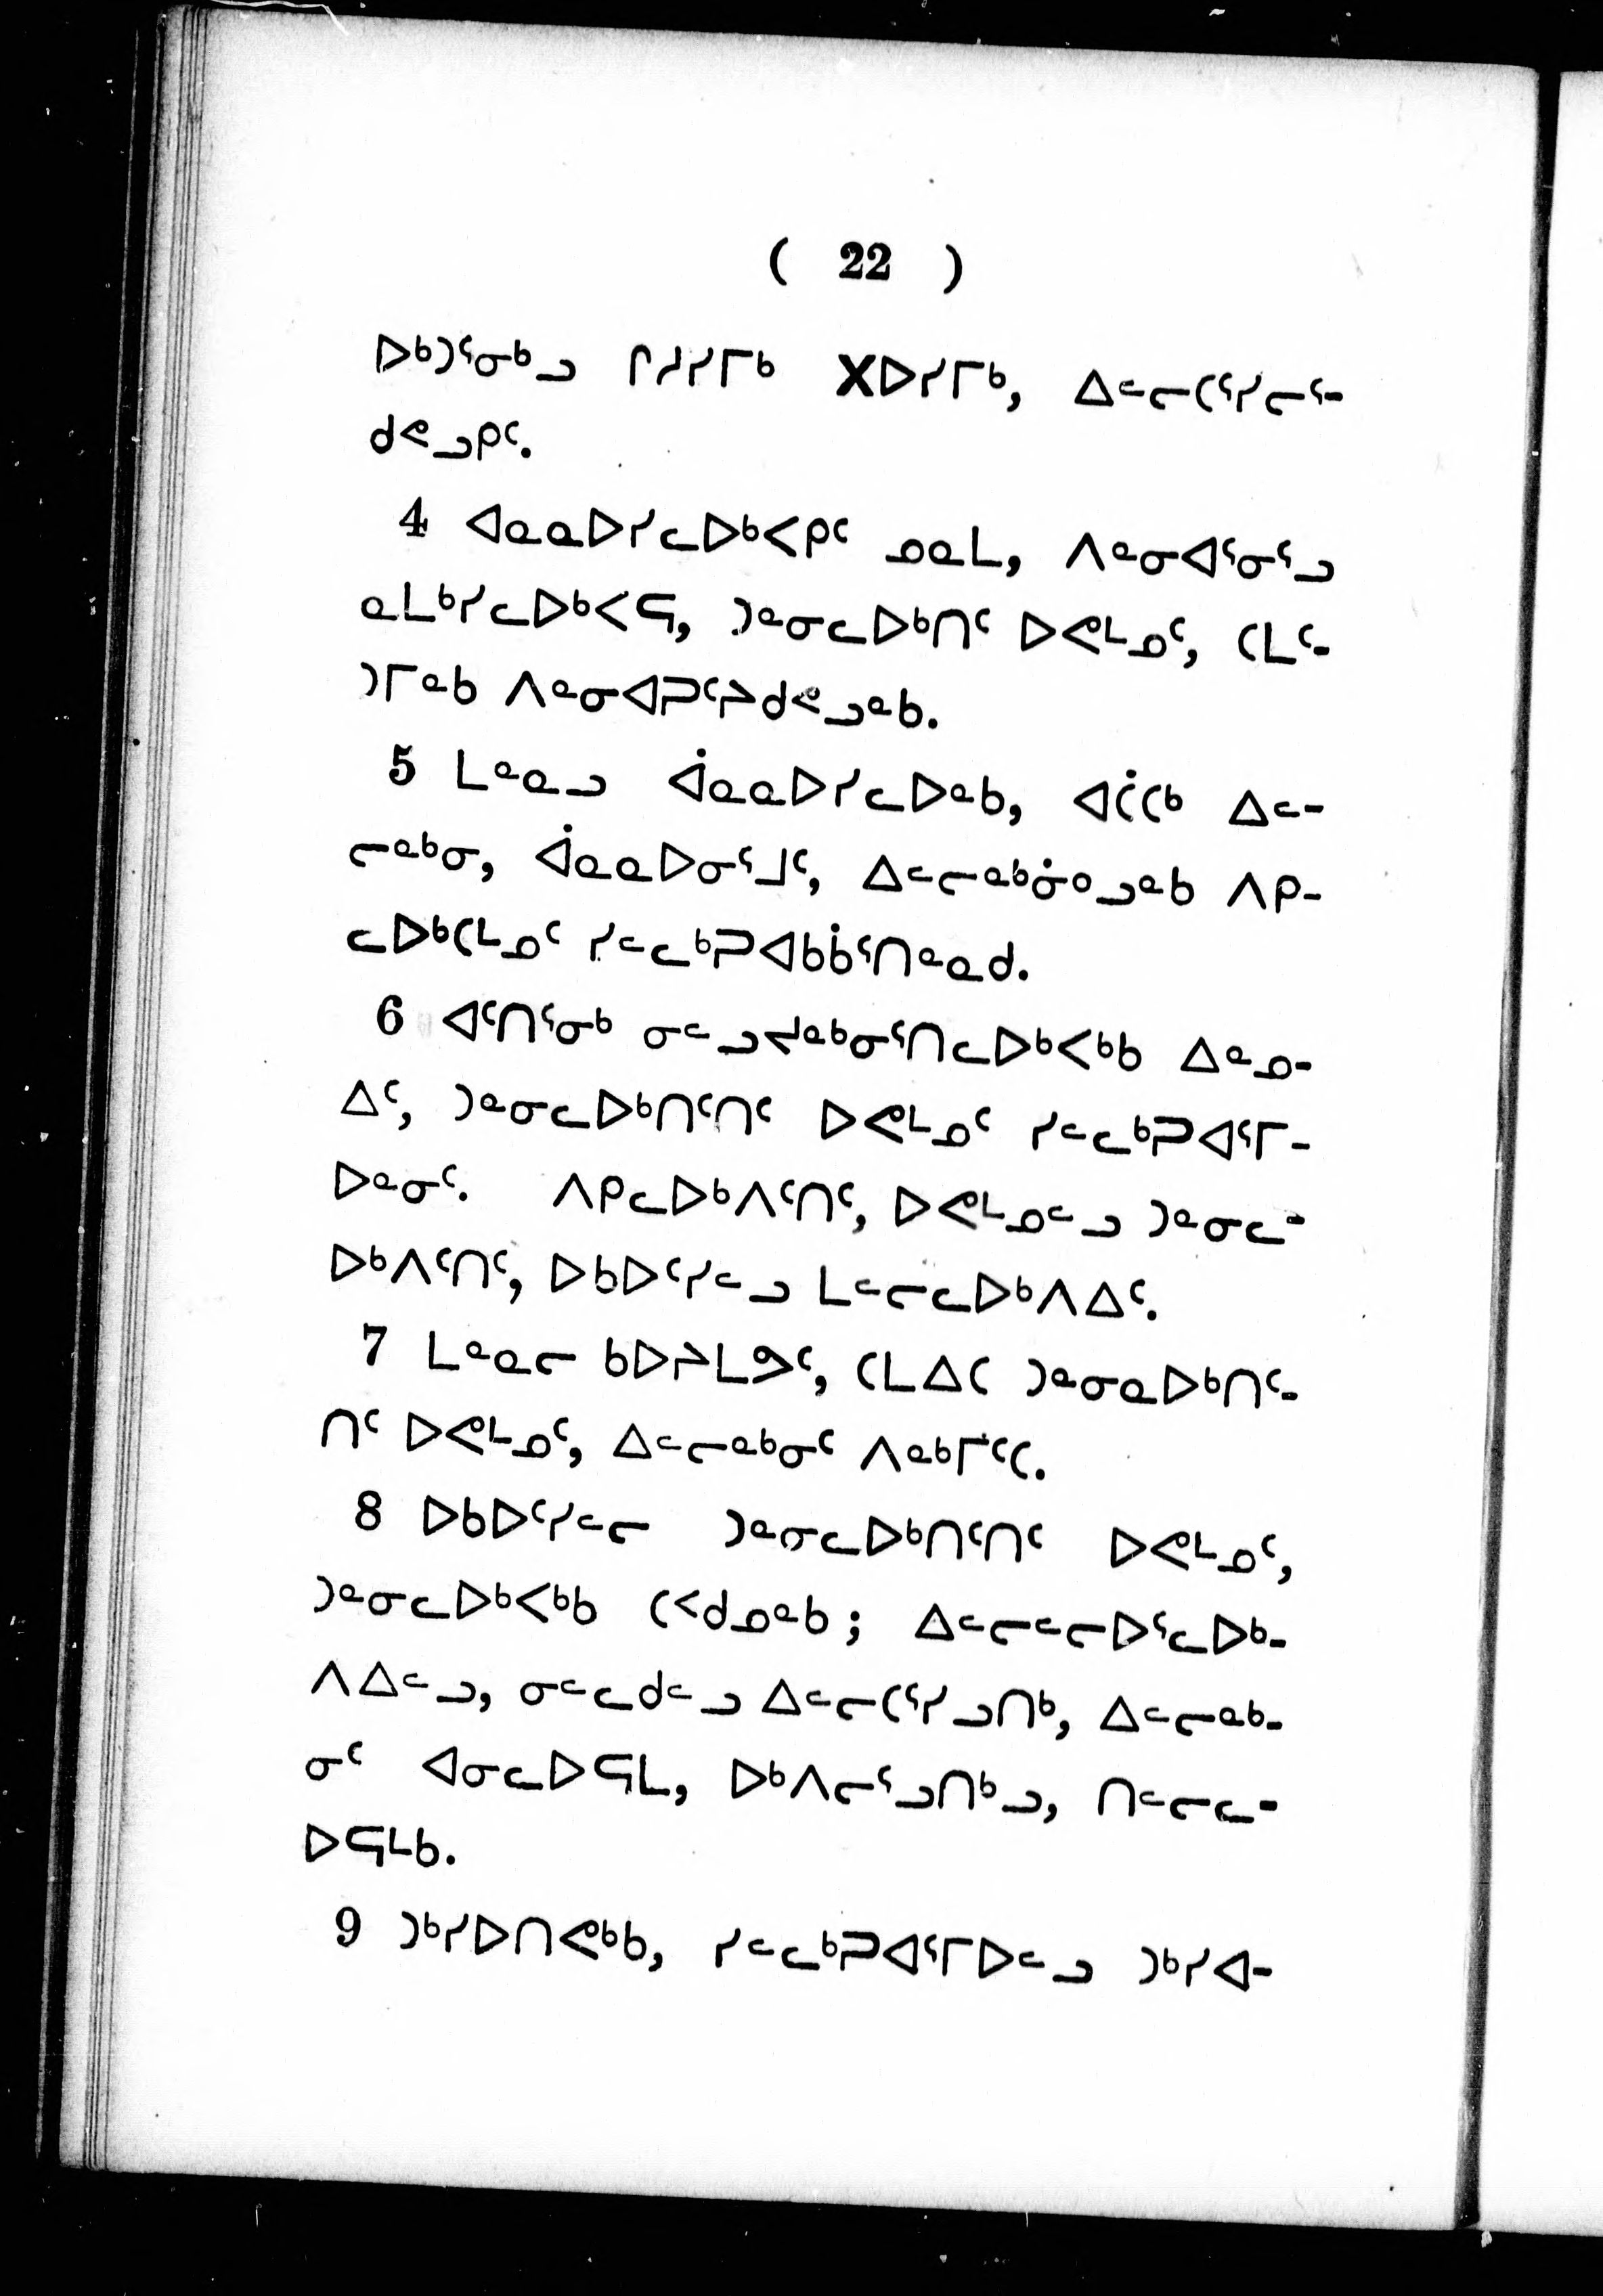 ( 22 )
ᐅᒃᑐᕐᓂᒃᓗ ᒋᓱᓯᒥᒃ Xᐅᓯᒥᒃ, ᐃᓪᓕᑕᕐᓯᓕᕐ-
ᑯᕙᓗᑭᑦ.
4 ᐊᓇᓇᐅᓯᓚᐅᒃᐸᑭᑦ ᓄᓇᒪ, ᐱᓐᓂᐊᕐᓂᕐᓗ
ᓇᒪᒃᓯᓚᐅᒃᐸᕋ, ᑐᓐᓂᓚᐅᒃᑎᑦ ᐅᕙᒻᓄᑦ, ᑕᒪᑦ-
ᑐᒥᓐᑲ ᐱᓐᓂᐊᕈᑦᔨᑯᕙᓗᓐᑲ.
5 ᒪᓐᓇᓗ ᐋᓇᓇᐅᓯᓚᐅᓐᑲ, ᐊᑖᑕᒃ ᐃᓪ-
ᓕᓐᒃᓂ, ᐋᓇᓇᐅᓂᕐᒧᑦ, ᐃᓪᓕᓐᒃᓃᐤᓗᓐᑲ ᐱᑭ-
ᓚᐅᒃᑕᒻᓄᑦ ᓯᓪᓚᒃᕈᐊᑲᑳᕐᑎᓐᓇᑯ.
6 ᐊᑦᑎᕐᓂᒃ ᓂᓪᓗᔪᓐᒃᓂᕐᑎᓚᐅᒃᐸᒃᑲ ᐃᓐᓄ-
ᐃᑦ, ᑐᓐᓂᓚᐅᒃᑎᑦᑎᑦ ᐅᕙᒻᓄᑦ ᓯᓪᓚᒃᕈᐊᕐᒥ-
ᐅᓐᓂᑦ. ᐱᑭᓚᐅᒃᐱᑦᑎᑦ, ᐅᕙᒻᓄᓪᓗ ᑐᓐᓂᓚ-
ᐅᒃᐱᑦᑎᑦ, ᐅᑲᐅᑦᓯᓪᓗ ᒪᓪᓕᓚᐅᒃᐱᐃᑦ.
7 ᒪᓐᓇᓕ ᑲᐅᔨᒪᕗᑦ, ᑕᒪᐃᑕ ᑐᓐᓂᓇᐅᒃᑎᑦ-
ᑎᑦ ᐅᕙᒻᓄᑦ, ᐃᓪᓕᓐᒃᓂᑦ ᐱᓐᒃᒦᑦᑕ.
8 ᐅᑲᐅᑦᓯᓪᓕ ᑐᓐᓂᓚᐅᒃᑎᑦᑎᑦ ᐅᕙᒻᓄᑦ,
ᑐᓐᓂᓚᐅᒃᐸᒃᑲ ᑕᑉᑯᓄᓐᑲ ; ᐃᓪᓕᓪᓕᐅᕐᓚᐅᒃ-
ᐱᐃᓪᓗ, ᓂᓪᓚᑯᓪᓗ ᐃᓪᓕᑕᕐᓯᓗᑎᒃ, ᐃᓪᓕᓐᒃ-
ᓂᑦ ᐊᓂᓚᐅᕋᒪ, ᐅᒃᐱᓕᕐᓗᑎᒃᓗ, ᑎᓪᓕᓚ-
ᐅᕋᒻᑲ.
9 ᑐᒃᓯᐅᑎᕙᒃᑲ, ᓯᓪᓚᒃᕈᐊᕐᒥᐅᓪᓗ ᑐᒃᓯᐊ-